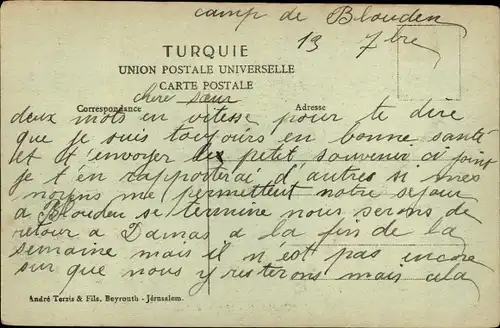 camp de Blouden
13 7bre
TURQUIE
UNION POSTALE UNIVERSELLE
CARTE POSTALE
Correspondance
Adresse
chere sœur
deux mots en vitesse pour te dire
que je suis toujours en bonne santé
et t'envoyer petit souvenir ci joint
je t en rapporterai d'autres si mes
moyens me permettent notre sejour
a Blouden se termine nous serons de
retour a Damas a la fin de la
semaine mais il n'est pas encore
sur que nous y resterons mais cela
André Terzis & Fils, Beyrouth - Jérusalem.